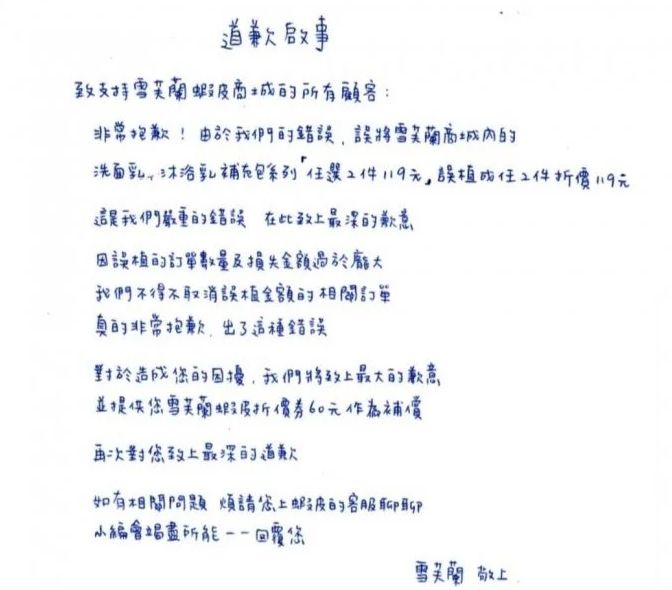 道歉啟事
致支持雪芙蘭蝦皮商城的所有顧客：
非常抱歉！由於我們的錯誤，誤將雪芙蘭商城內的
洗面乳、沐浴乳補充包系列「任選2件119元」誤植成任2件折價119元
這是我們嚴重的錯誤 在此致上最深的歉意
因誤植的訂單數量及損失金額過於龐大
我們不得不取消誤植金額的相關訂單
真的非常抱歉，出了這種錯誤
對於造成您的困擾，我們將致上最大的歉意
並提供您雪芙蘭蝦皮折價券60元作為補償
再次對您致上最深的道歉
如有相關問題 煩請您上蝦皮的客服聊聊
小編會竭盡所能一一回覆您
雪芙蘭 敬上